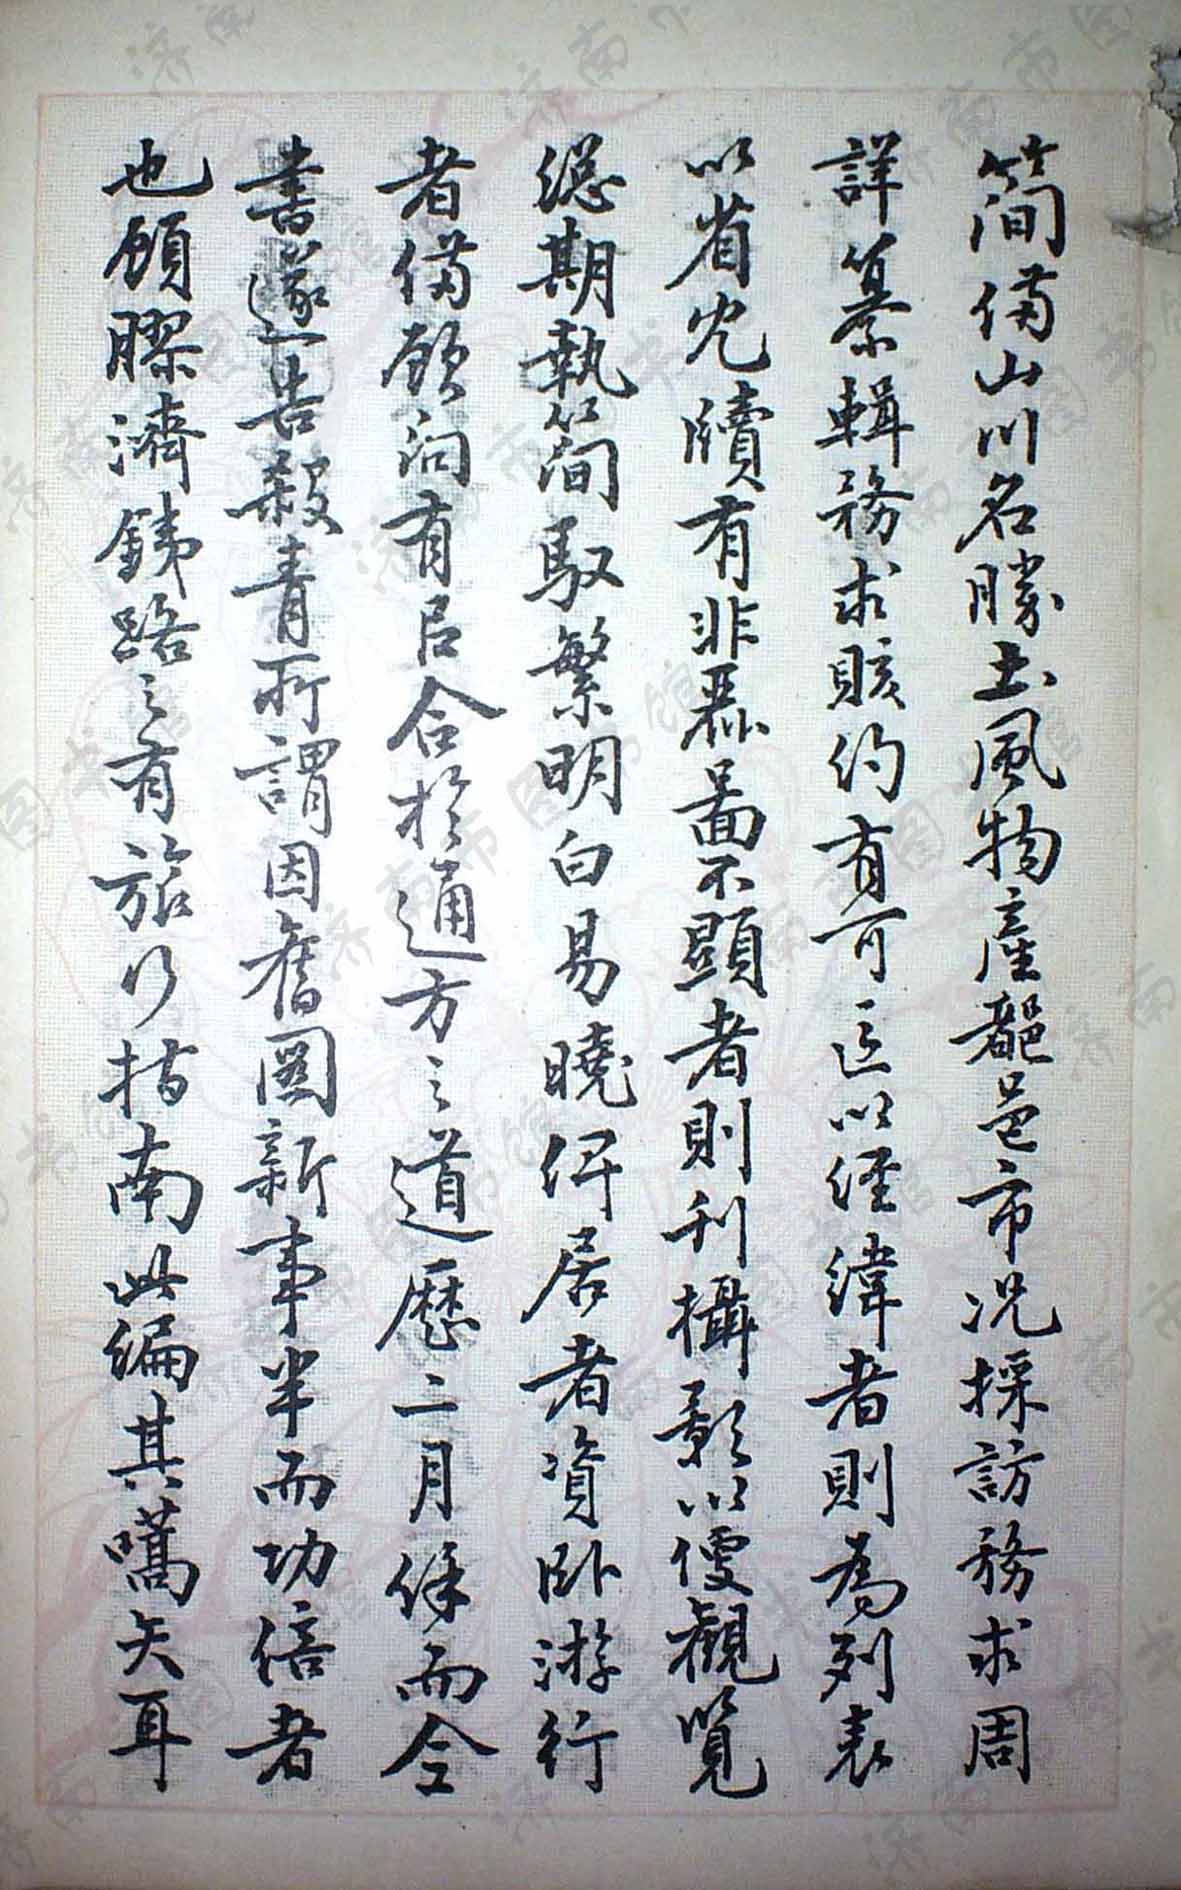 簡備山川名勝土風物產都邑市況採訪務求周
詳纂輯務求賅約有可區以經緯者則為列表
以省冗牘有非縣啚不顯者則刋攝影以便觀覽
總期執簡馭繁明白易曉俾居者資卧游行
者備顧問有合於通方之道歷二月餘而全
書遂告殺青所謂因舊圖新事半而功倍者
也顧膠濟鉄路之有旅行指南此編其嚆矢耳